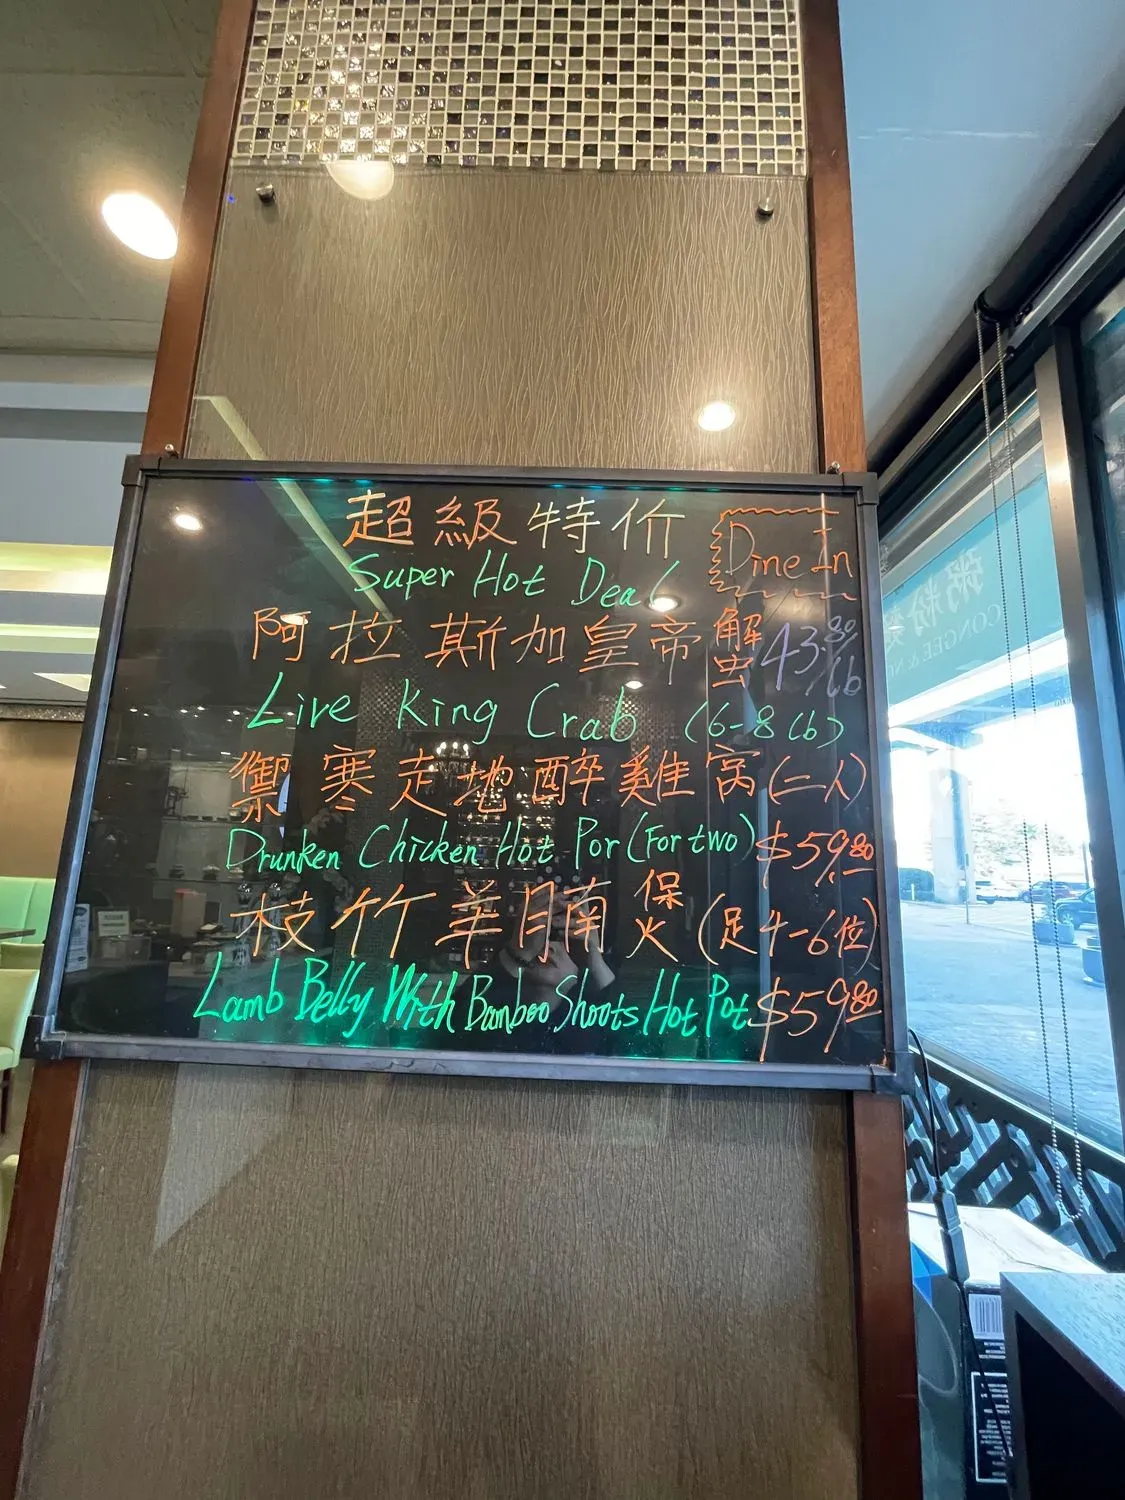 超級特价
Dine In
Super Hot Deal
阿拉斯加皇帝蟹 43.80/lb
Live King Crab (6-8 lb)
禦寒走地醉雞窝(二人)
Drunken Chicken Hot Por (For two) $59.80
枝竹羊腩煲(足4-6位)
Lamb Belly With Bamboo Shoots Hot Pot $59.80
粥粉
CONGEE & NO